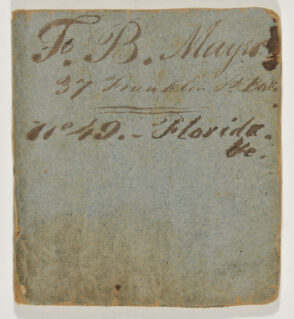 F. B. Mayer
37 Franklin St Balt
No 49. - Florida.
&c.